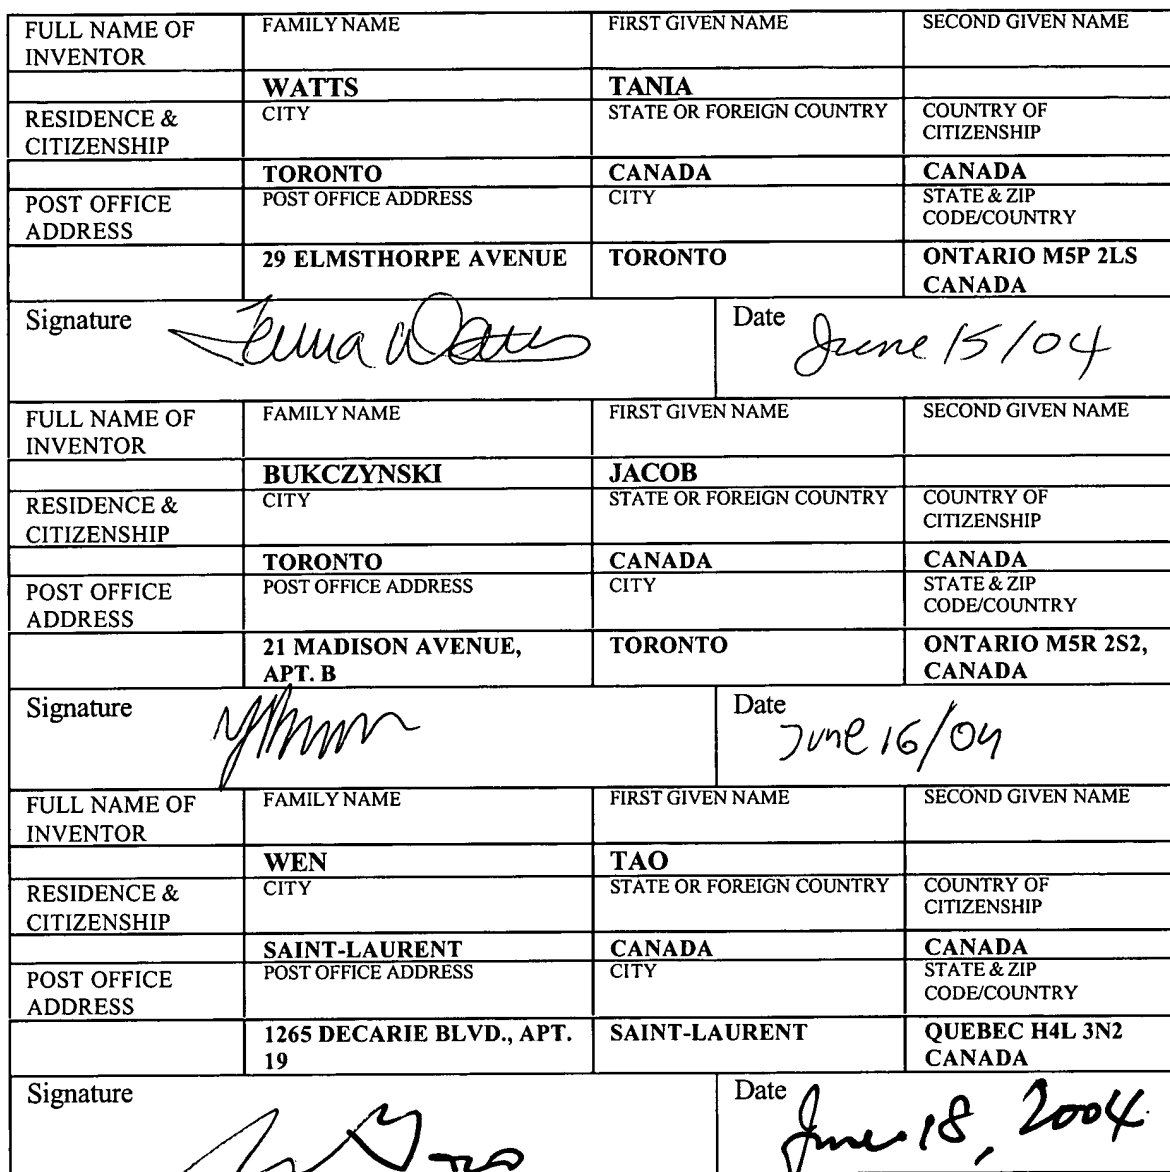 FULL NAME OF INVENTOR FAMILY NAME FIRST GIVEN NAME SECOND GIVEN NAME
WATTS TANIA
RESIDENCE & CITIZENSHIP CITY STATE OR FOREIGN COUNTRY COUNTRY OF CITIZENSHIP
TORONTO CANADA CANADA
POST OFFICE ADDRESS POST OFFICE ADDRESS CITY STATE & ZIP CODE/COUNTRY
29 ELMSTHORPE AVENUE TORONTO ONTARIO M5P 2LS CANADA
Signature Tania Watts Date June 15/04
FULL NAME OF INVENTOR FAMILY NAME FIRST GIVEN NAME SECOND GIVEN NAME
BUKCZYNSKI JACOB
RESIDENCE & CITIZENSHIP CITY STATE OR FOREIGN COUNTRY COUNTRY OF CITIZENSHIP
TORONTO CANADA CANADA
POST OFFICE ADDRESS POST OFFICE ADDRESS CITY STATE & ZIP CODE/COUNTRY
21 MADISON AVENUE, APT. B TORONTO ONTARIO M5R 2S2, CANADA
Signature Date June 16/04
FULL NAME OF INVENTOR FAMILY NAME FIRST GIVEN NAME SECOND GIVEN NAME
WEN TAO
RESIDENCE & CITIZENSHIP CITY STATE OR FOREIGN COUNTRY COUNTRY OF CITIZENSHIP
SAINT-LAURENT CANADA CANADA
POST OFFICE ADDRESS POST OFFICE ADDRESS CITY STATE & ZIP CODE/COUNTRY
1265 DECARIE BLVD., APT. 19 SAINT-LAURENT QUEBEC H4L 3N2 CANADA
Signature Date June 18, 2004